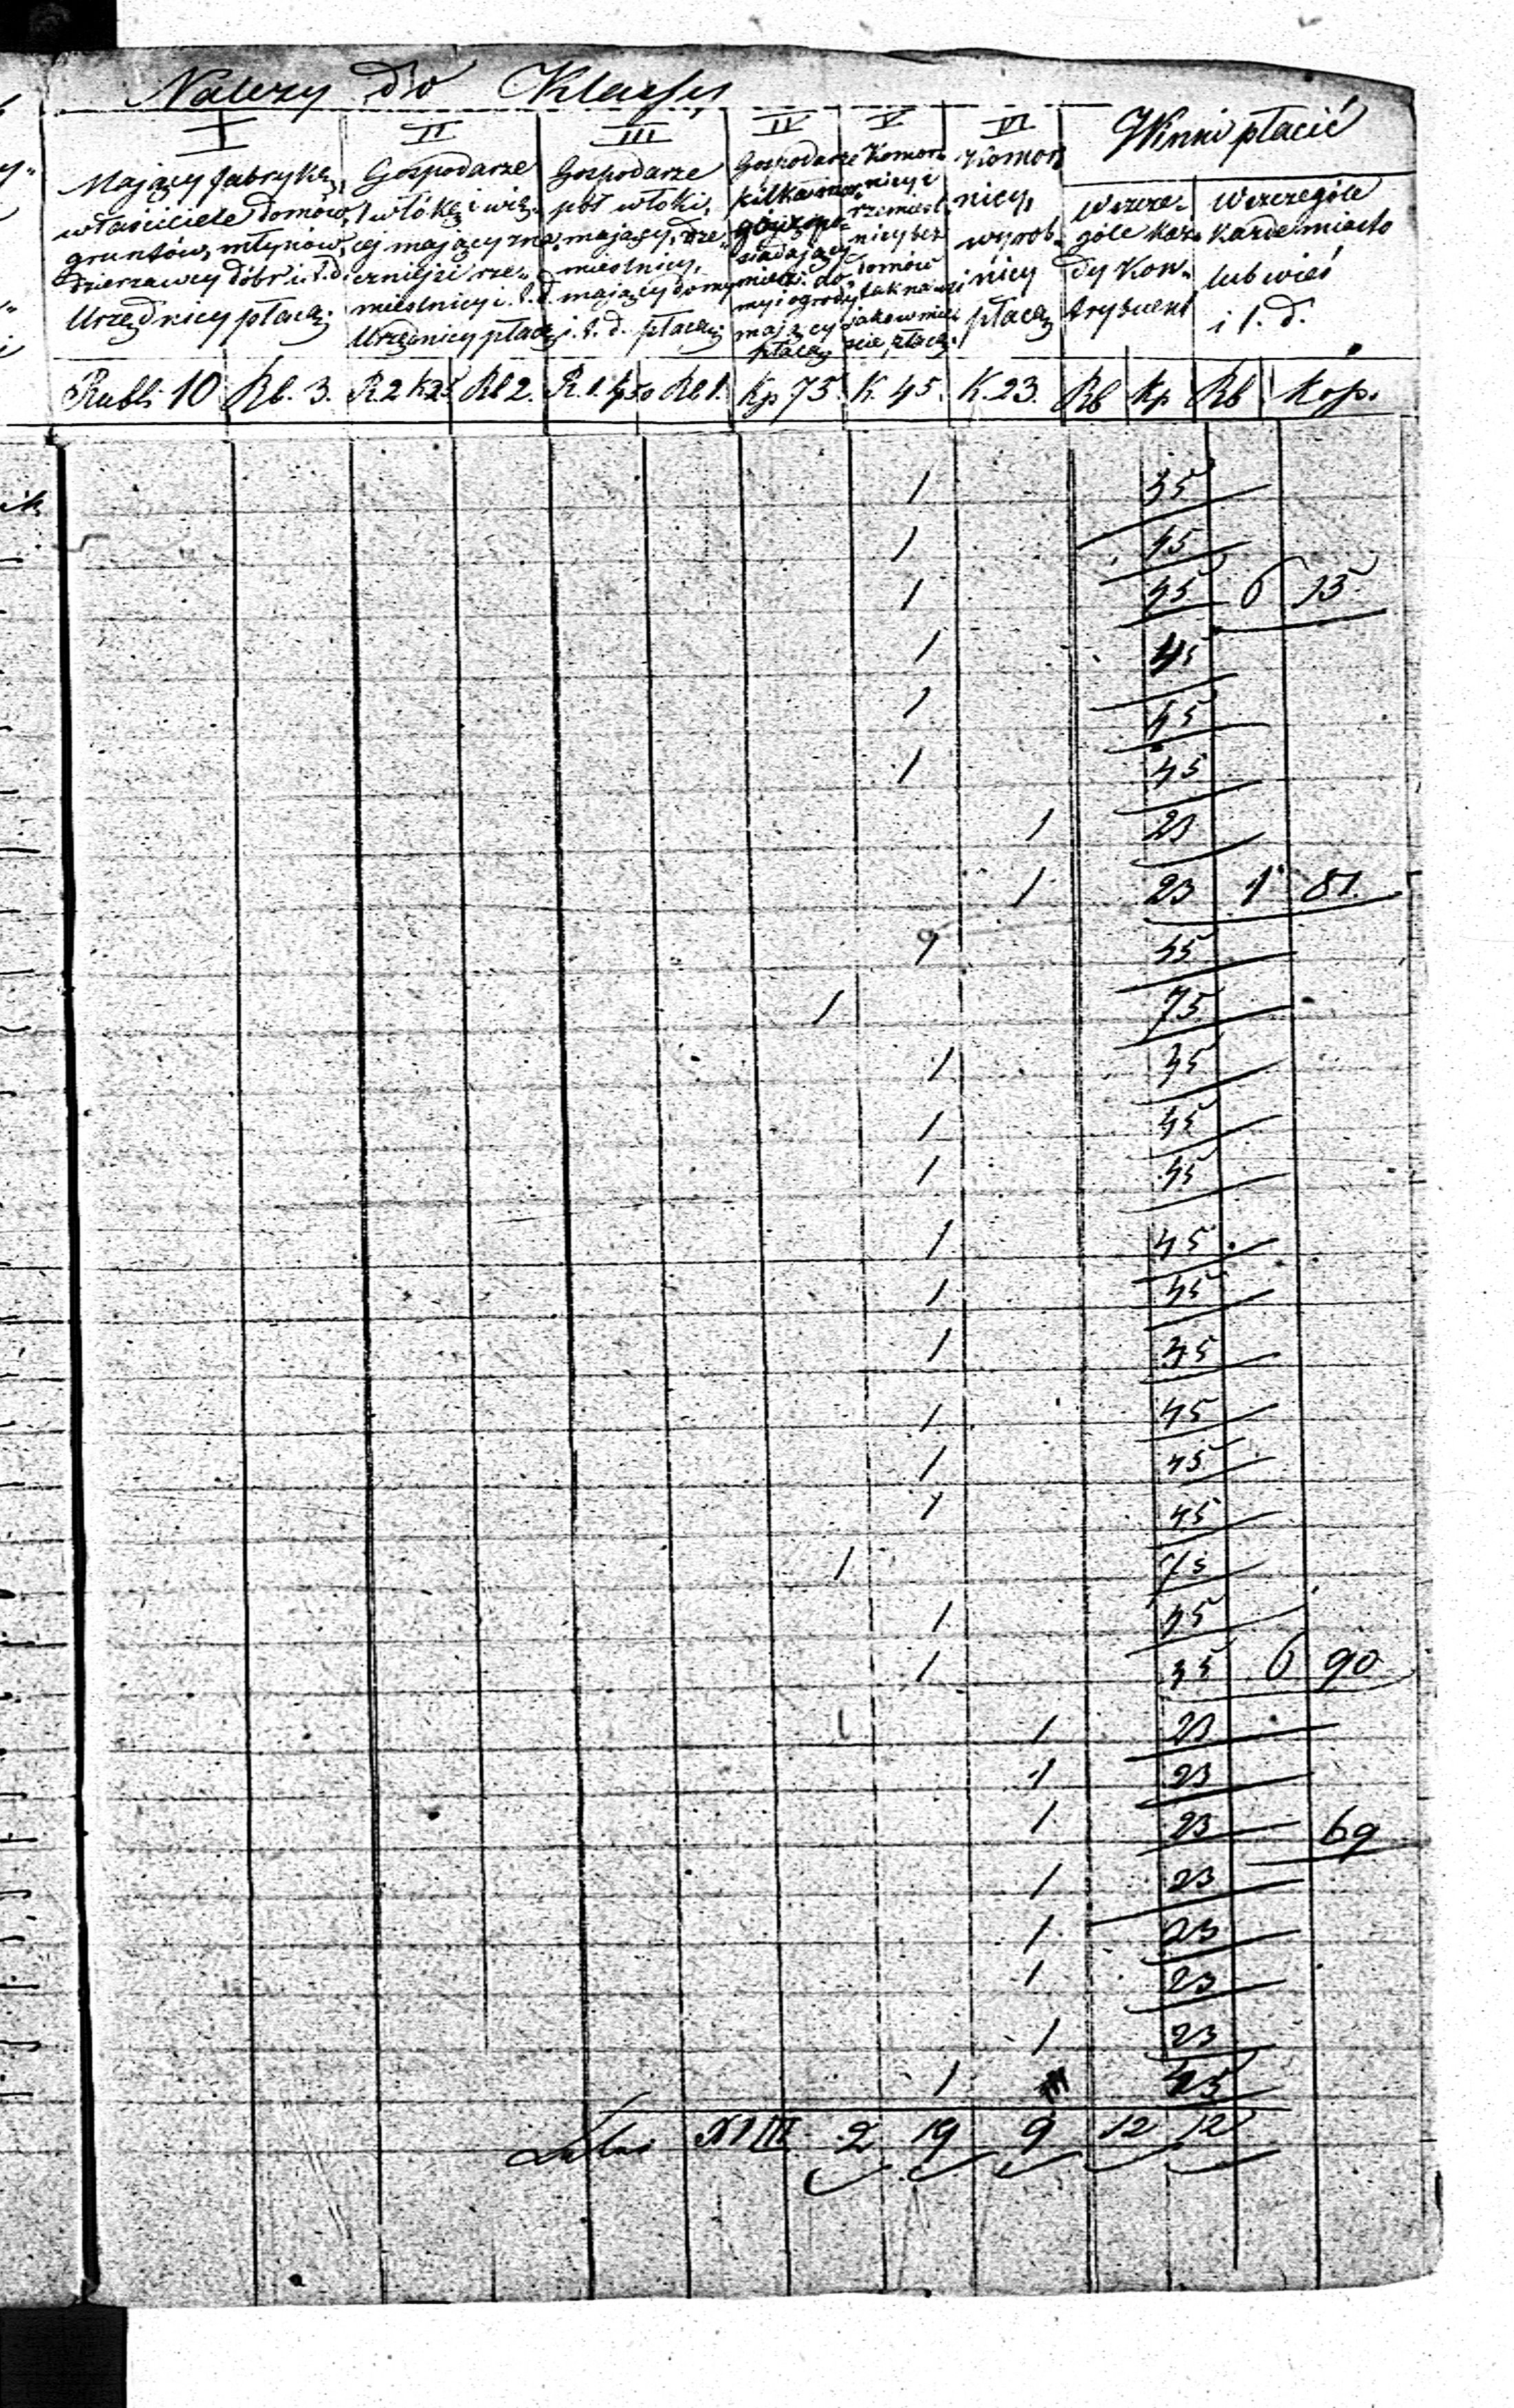 Należy do Klassy
I II III IV V VI Winni płacić
Mający fabrykę, właściciele domów, gruntów, młynów, dzierżawcy dóbr i t. d. Urzędnicy płacą
Gospodarze 1 włókę i więcej mający znaczniejsi rzemieslnicy i t. d. Urzędnicy płacą
Gospodarze pół włoki, mający, rzemieslnicy, mający domy i t. d. płacą
Gospodarze kilka morgów posiadający miesz. domy i ogrody mający płacą
Komornicy i rzemieslnicy bez domów tak na wsi jako w mieście płacą
Komornicy, wyrobnicy płacą
Wszczególe każdy kontrybuent
Wszczególe każde miasto lub wieś i t. d.
Rubli 10 Rb. 3. R. 2 k 25 Rb 2. R. 1. k 50 Rb 1. Kp 75 K. 45. K. 23. Rb Kp Rb Kop.
1 45
1 45
1 45 6 15
1 45
1 45
1 45
1 23
1 23 1 81
1 45
1 75
1 45
1 45
1 45
1 45
1 45
1 45
1 45
1 45
1 45
1 75
1 45
1 45 6 90
1 23
1 23
1 23 69
1 23
1 23
1 23
1 23
1 45
Latus N III 2 19 9 12 12